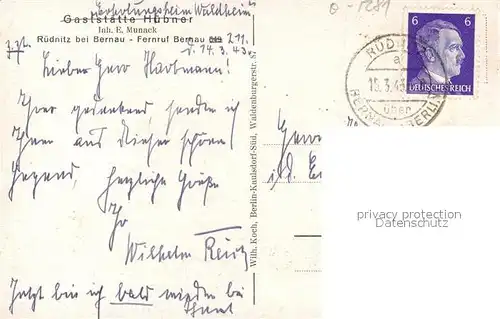 Erholungsheim Waldheim
O-1281
Gaststätte Hübner
Inh. E. Munack
Rüdnitz bei Bernau - Fernruf Bernau 211.
z.Zt.
d. 14.3.43.
Lieber Herr Hartmann!
Ihrer gedenkend senden ich
Ihnen aus dieser schönen
Gegend, herzliche Grüße
Ihr
Wilhelm
Jetzt bin ich bald wieder bei
Wilh. Koch, Berlin-Kaulsdorf-Süd, Waldenburgerstr. 87
6 6
DEUTSCHES REICH
RÜDNITZ
15.3.43
über
BERNAU BERLIN
privacy protection
Datenschutz